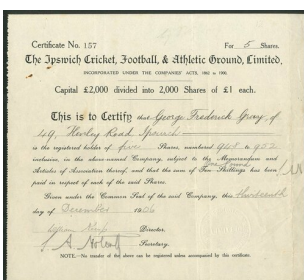 Certificate No. 157 For 5 Shares.
The Ipswich Cricket, Football, & Athletic Ground, Limited,
INCORPORATED UNDER THE COMPANIES' ACTS, 1862 to 1900.
Capital £2,000 divided into 2,000 Shares of £1 each.
This is to Certify that George Frederick Gray of
49, Henley Road Ipswich
is the registered holder of five Shares, numbered 948 to 952
inclusive, in the above-named Company, subject to the Memorandum and
Articles of Association thereof, and that the sum of Ten Shillings has been
One Pound
paid in respect of each of the said Shares.
Given under the Common Seal of the said Company, this thirteenth
day of December 1906
Director.
Secretary.
NOTE.—No transfer of the above can be registered unless accompanied by this certificate.